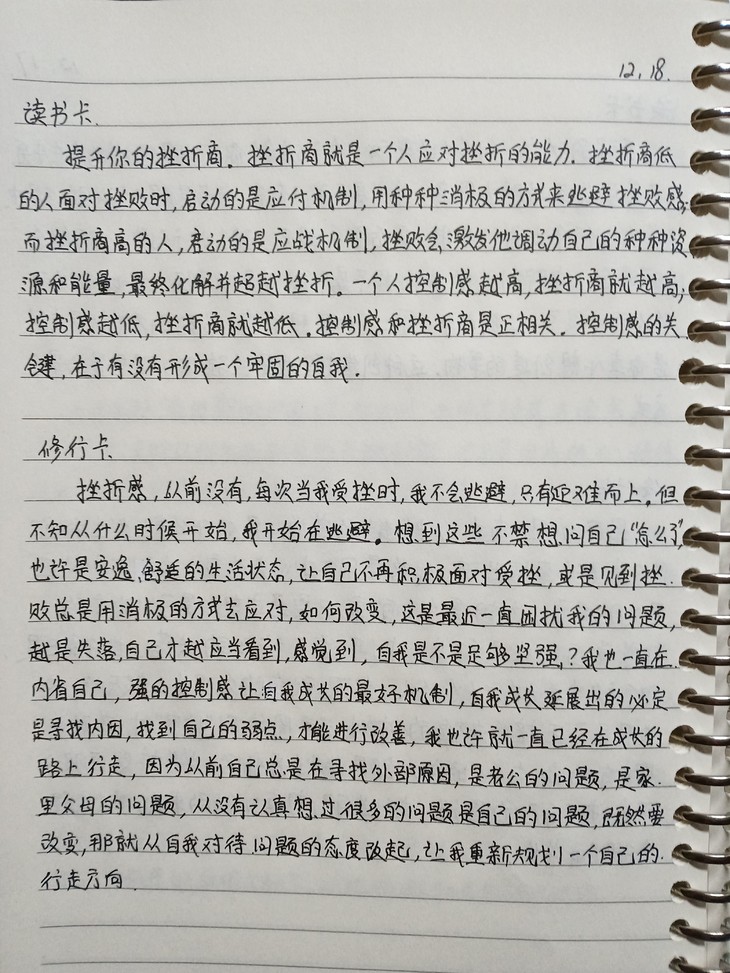 12.18.
读书卡.
提升你的挫折商. 挫折商就是一个人应对挫折的能力. 挫折商低
的人面对挫败时,启动的是应付机制,用种种消极的方式来逃避挫败感;
而挫折商高的人,启动的是应战机制,挫败会激发他调动自己的种种资
源和能量,最终化解并超越挫折。一个人控制感越高,挫折商就越高;
控制感越低,挫折商就越低.控制感和挫折商是正相关. 控制感的关
键,在于有没有形成一个牢固的自我.
修行卡
挫折感,从前没有,每次当我受挫时,我不会逃避,只有迎难而上.但
不知从什么时候开始,我开始在逃避。想到这些不禁想问自己“怎么了”,
也许是安逸、舒适的生活状态,让自己不再积极面对受挫,或是见到挫
败总是用消极的方式去应对,如何改变,这是最近一直困扰我的问题,
越是失落,自己才越应当看到,感觉到,自我是不是足够坚强,?我也一直在
内省自己,强的控制感让自我成长的最好机制,自我成长延展出的必定
是寻找内因,找到自己的弱点,才能进行改善,我也许就一直已经在成长的
路上行走,因为从前自己总是在寻找外部原因,是老公的问题,是家
里父母的问题,从没有认真想过很多的问题是自己的问题,既然要
改变,那就从自我对待问题的态度改起,让我重新规划一个自己的
行走方向.